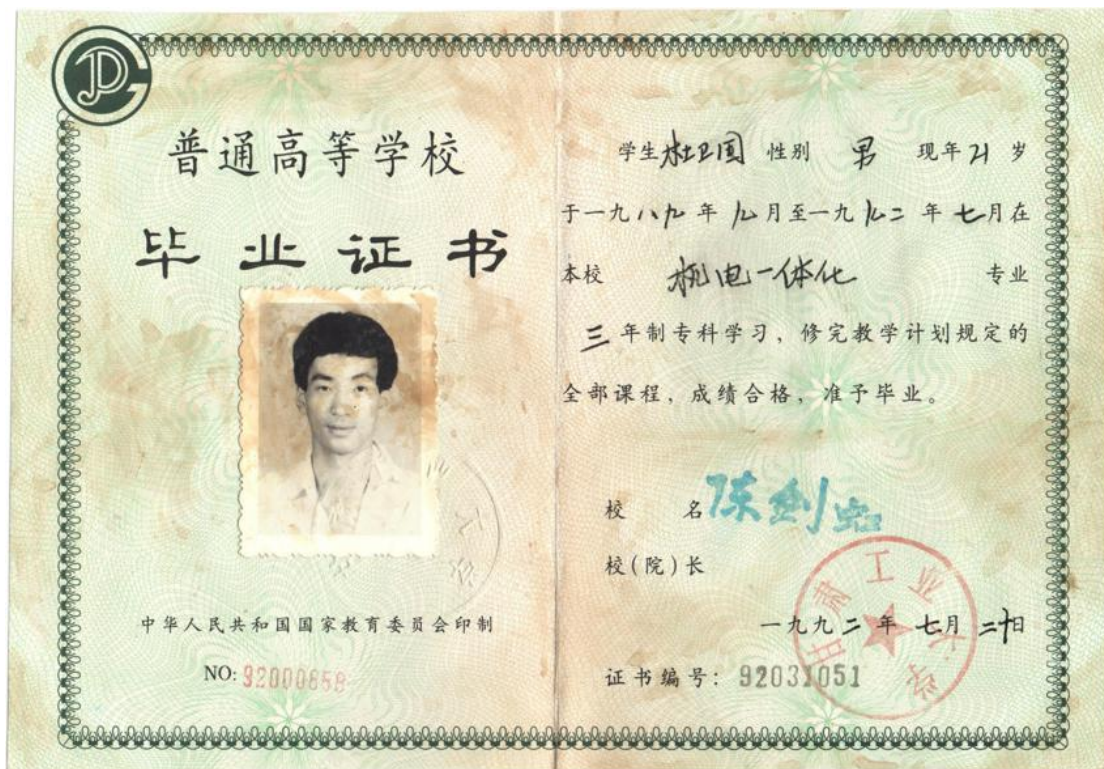 普通高等学校
毕业证书
中华人民共和国国家教育委员会印制
NO: 92000658
学生 杜卫国 性别 男 现年 21 岁
于一九八九年九月至一九九二年七月在
本校 机电一体化 专业
三年制专科学习，修完教学计划规定的
全部课程，成绩合格，准予毕业。
校 名 陈剑虹
校(院)长
甘肃工业大学
一九九二年七月二十日
证书编号：92031051